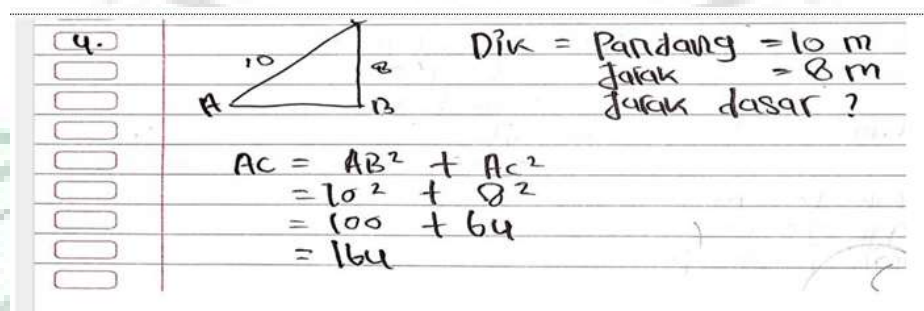 4.
10
8
A
B
Dik = Pandang = 10 m
Jarak = 8 m
Jarak dasar ?
AC = AB² + AC²
= 10² + 8²
= 100 + 64
= 164